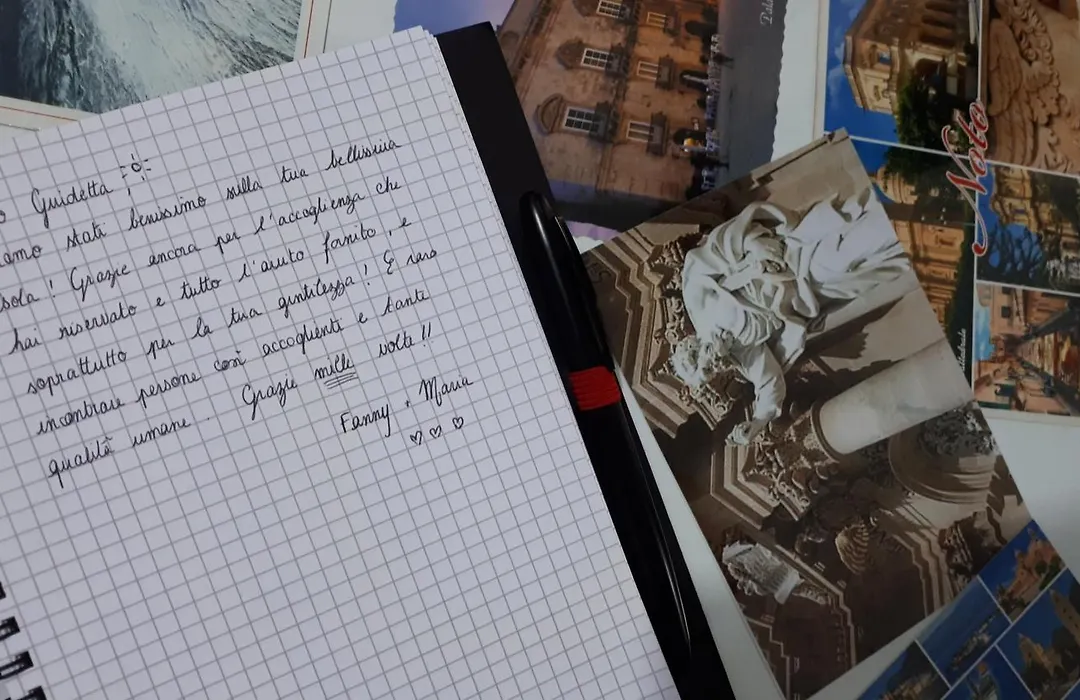 Guidetta
stati benissimo sulla tua bellissima
! Grazie ancora per l'accoglienza che
hai riservato e tutto l'aiuto fornito, e
soprattutto per la tua gentilezza! È raro
incontrare persone così accoglienti e tante
qualità umane. Grazie mille volte!!
Fanny + Maria
♡ ♡ ♡
Noto